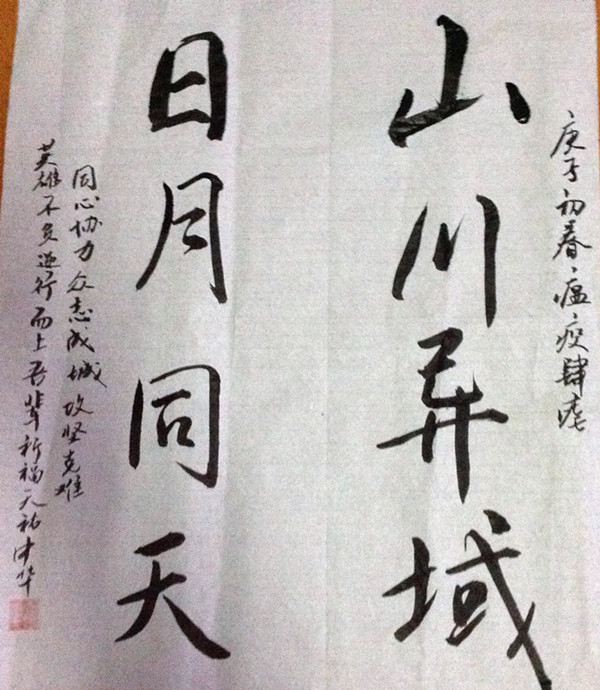 庚子初春瘟疫肆虐
山川异域
日月同天
同心协力众志成城攻坚克难
英雄不负逆行而上吾辈祈福天祐中华